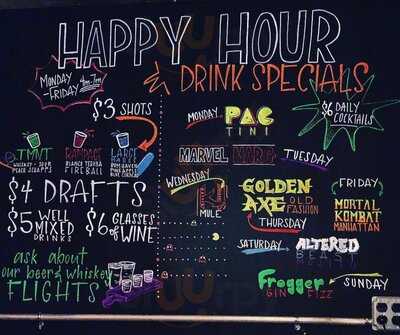 HAPPY HOUR
& DRINK SPECIALS
MONDAY
-FRIDAY 4PM-7PM
$3 SHOTS
TMNT
WHISKEY + SOUR
PEACH SCHNAPPS
RAMPAGE
BLANCO TEQUILA
FIREBALL
LARGE
$4 DRAFTS
$5 WELL
MIXED
DRINKS
$6 GLASSES
OF WINE
ask about
our beer & whiskey
FLIGHTS
$6 DAILY
COCKTAILS
MONDAY
PAC
TINI
MARVEL
TUESDAY
WEDNESDAY
MULE
GOLDEN
AXE OLD
FASHION
THURSDAY
FRIDAY
MORTAL
KOMBAT
MANHATTAN
SATURDAY
ALTERED
BEAST
Frogger
GIN FIZZ
SUNDAY